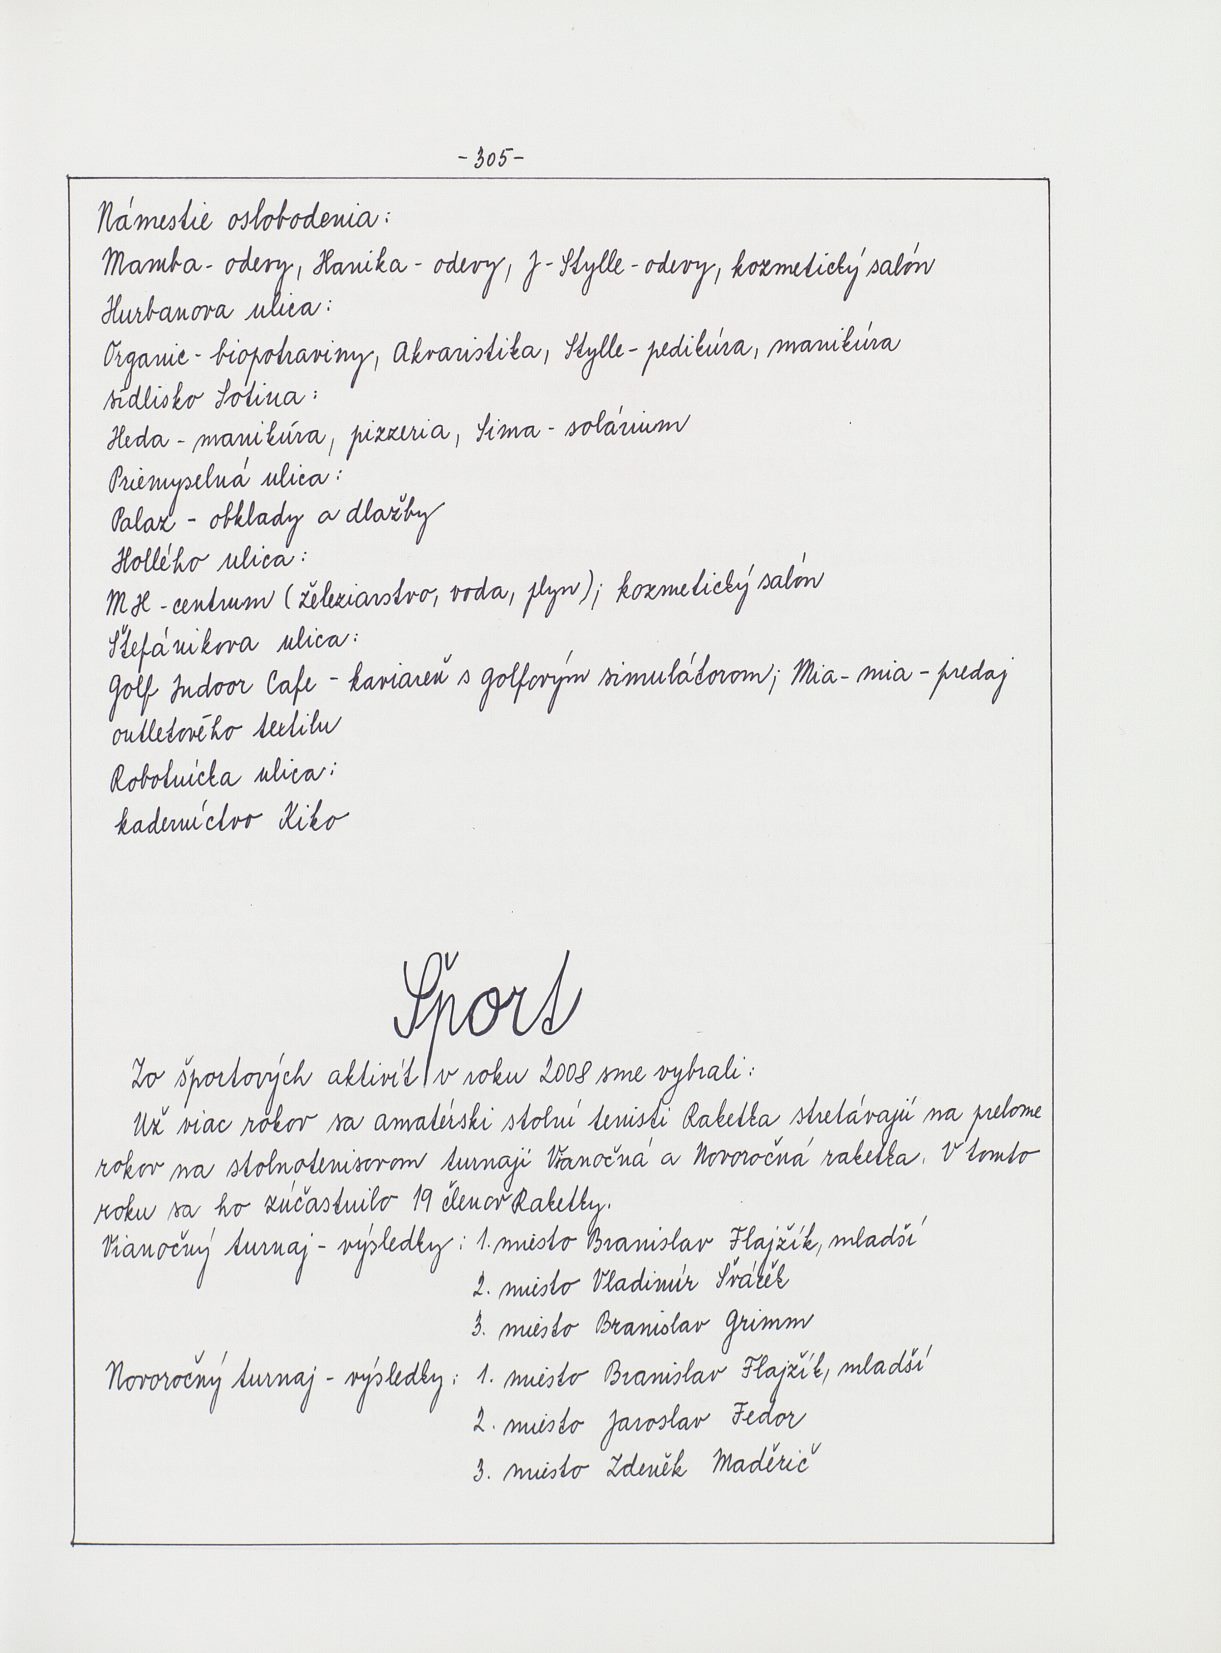 -305-
Námestie oslobodenia:
Mamba - odevy, Hanika - odevy, J-Stylle-odevy, kozmetický salón
Hurbanova ulica:
Organic - biopotraviny, Akvaristika, Stylle-pedikúra, manikúra
sídlisko Sotina:
Heda - manikúra, pizzeria, Sima - solárium
Priemyselná ulica:
Palaz - obklady a dlažby
Hollého ulica:
MH-centrum (železiarstvo, voda, plyn); kozmetický salón
Štefánikova ulica:
Golf Indoor Cafe - kaviareň s golfovým simulátorom; Mia-mia-predaj
outletového textilu
Robotnícka ulica:
kaderníctvo Kiko
Šport
Zo športových aktivít v roku 2008 sme vybrali:
Už viac rokov sa amatérski stolní tenisti Raketka stretávajú na prelome
rokov na stolnotenisovom turnaji Vianočná a Novoročná raketka. V tomto
roku sa ho zúčastnilo 19 členov Raketky.
Vianočný turnaj - výsledky: 1. miesto Branislav Flajžík, mladší
2. miesto Vladimír Švážěk
3. miesto Branislav Grimm
Novoročný turnaj - výsledky: 1. miesto Branislav Flajžík, mladší
2. miesto Jaroslav Fedor
3. miesto Zdeněk Maděrič